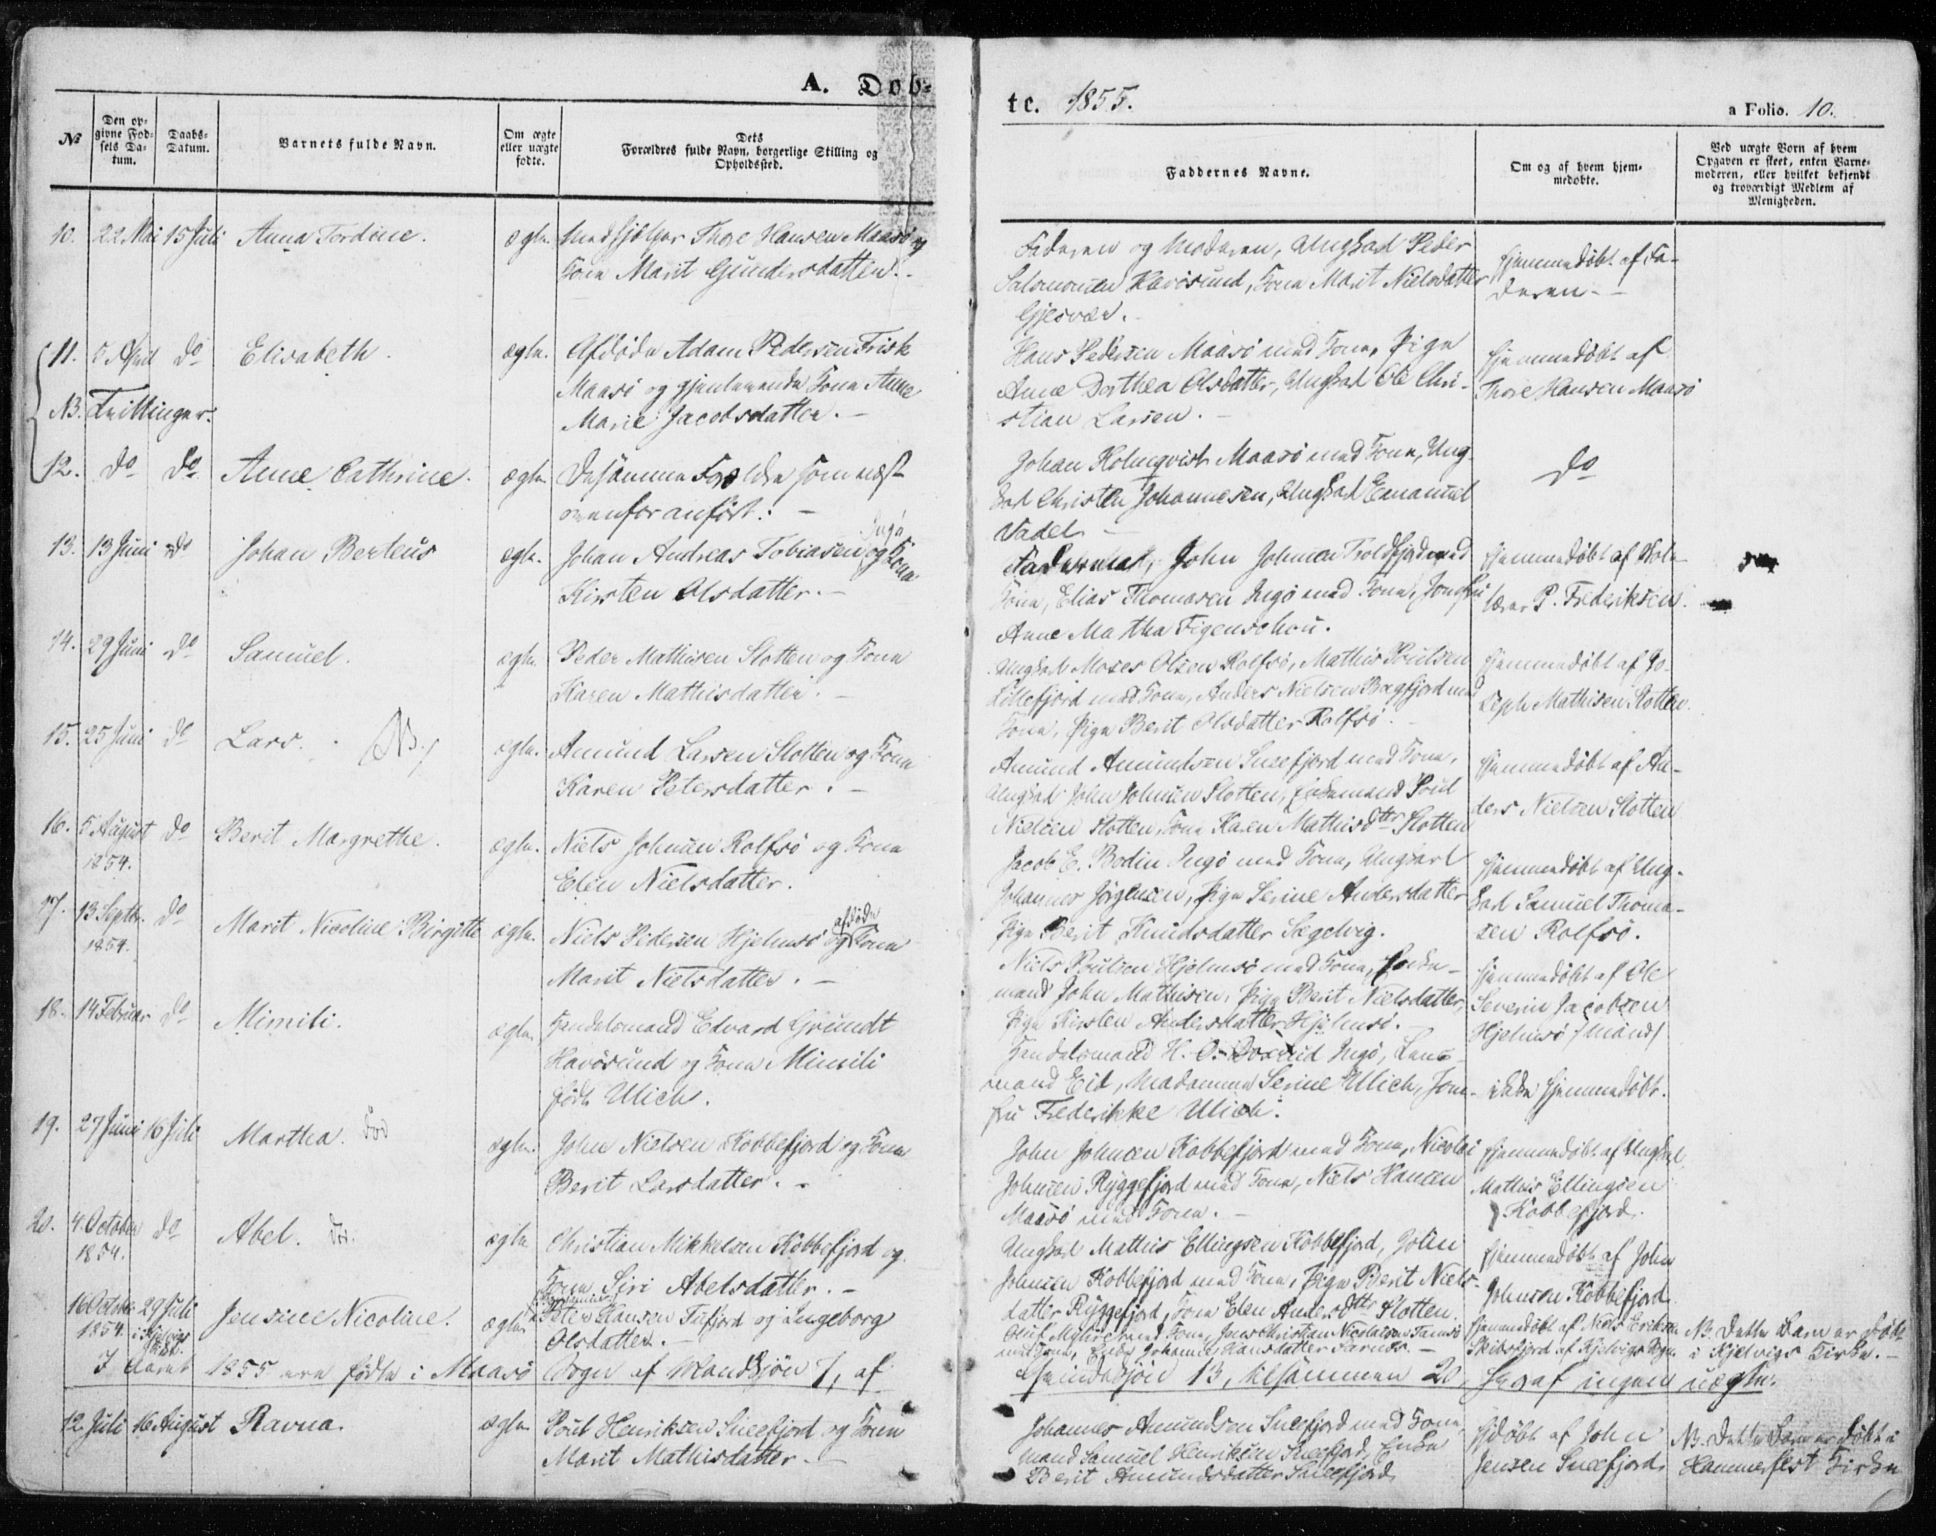 A. Døb-
te. 1855.
a Folio. 10.
No
Den opgivne Fødsels Datum.
Daabs-Datum.
Barnets fulde Navn.
Om ægte eller uægte fødte.
Dets Forældres fulde Navn, borgerlige Stilling og Opholdssted.
Faddernes Navne.
Om og af hvem hjemmedøbte.
Ved uægte Børn af hvem Opgaven er skeet, enten Barnemoderen, eller hvilket bekjendt og troværdigt Medlem af Menigheden.
10. 22 Mai 15 Juli Anna Tordine. ægte. Medhjælper Thore Hansen Maasø og
Kone Marit Gundersdatter. -
Faderen og Moderen, Ungkarl Peder
Salomonsen Havøsund, Kone Marit Nielsdatter
Gjesvær.
Hjemmedøbt af Fa-
deren -
11. 5 April do Elisabeth. ægte. Afdøde Adam Pedersen Frisk
Maasø og gjenlevende Kone Anne
Marie Jacobsdatter. -
Hans Pedersen Maasø med Kone, Pige
Anne Dorthea Olsdatter, Ungkarl Ole Chri-
stian Larsen. -
Hjemmedøbt af
Thore Hansen Maasø
NB. Tvillinger.
12. do do Anne Cathrine. ægte. De samme Forældre som næst
ovenfor anført. -
Johan Holmqvist Maasø med Kone, Ung-
karl Christen Johannesen, Ungkarl Emanuel
Vadel -
do
13. 13 Juni do Johan Berteus ægte. Johan Andreas Tobiasen Ingø og Kone
Kirsten Olsdatter. -
John Johnsen Troldfjord med
Kone, Elias Thomasen Ingø med Kone, Jomfru
Anne Martha Figenschou.
Hjemmedøbt af Skole-
lærer P. Frederiksen.
14. 29 Juni do Samuel. ægte. Peder Mathisen Slotten og Kone
Karen Mathisdatter. -
Ungkarl Moses Olsen Rolfsø, Mathis Poulsen
Lillefjord med Kone, Anders Nielsen Bagfjord med
Kone, Pige Berit Olsdatter Rolfsø. -
Hjemmedøbt af Jo-
seph Mathisen Slotten
15. 25 Juni do Lars. NB. ægte. Amund Larsen Slotten og Kone
Karen Petersdatter. -
Amund Amundsen Sneefjord med Kone,
Ungkarl John Johnsen Slotten, Enkemand Poul
Nielsen Slotten, Kone Karen Mathisdtr Slotten
Hjemmedøbt af An-
ders Nielsen Slotten
16. 5 August 1854. do Berit Margrethe. ægte. Niels Johnsen Rolfsø og Kone
Elen Nielsdatter.
Jacob E. Bodin Ingø med Kone, Ungkarl
Johannes Jørgensen, Pige Serine Andersdatter
Pige Berit Knudsdatter Sægelvig.
Hjemmedøbt af Ung-
karl Samuel Thoma-
sen Rolfsø.
17. 13 Septbr. 1854. do Marit Nicoline Birgitte ægte. Niels Pedersen Hjelmsø og afdøde Kone
Marit Nielsdatter. -
Niels Poulsen Hjelmsø med Kone, Enke-
mand John Mathisen, Pige Berit Nielsdatter,
Pige Kirsten Andersdatter Hjelmsø.
Hjemmedøbt af Ole
Severin Jacobsen
Hjelmsø
18. 14 Februar do Mimili. ægte. Handelsmand Edvard Grundt
Havøsund og Kone Mimili
født Ulich.
Handelsmand H. O. Ingø, Lens-
mand Eid, Madamme Serine Ulich, Jom-
fru Frederikke Ulich.
ikke hjemmedøbt.
19. 27 Juni 16 Juli Martha. ægte. John Nielsen Kobbefjord og Kone
Berit Larsdatter. -
John Johnsen Kobbefjord med Kone, Nicolai
Johnsen Ryggefjord med Kone, Niels Hansen
Maasø med Kone. -
Hjemmedøbt af Ungkarl
Mathis Ellingsen
Kobbefjord.
20. 4. October 1854. do Abel. ægte Christian Mikkelsen Kobbefjord og
Kone Siri Abelsdatter. -
Ungkarl Mathis Ellingsen Kobbefjord, John
Johnsen Kobbefjord med Kone, Pige Berit Niels-
datter Ryggefjord, Kone Elen Andersdtr Slotten.
Hjemmedøbt af John
Johnsen Kobbefjord
16 Octobr 1854. 29 Juli Jensine Nicoline. ægte Peter Hansen Tufjord og Ingeborg
Olsdatter. -
Oluf med Kone, Jens Christian Nicolaisen
Hjemmedøbt af Niels Eriksen
Skibsfjord af Kjelvigs Sogn.
NB. Dette Barn er døbt
i Kjelvigs Kirke. -
I Aaret 1855 ere fødte i Maasø Sogn af Mandkjøn 7, af
Qvindekjøn 13, tilsammen 20, heraf ingen uægte.
12 Juli 16 August Ravna. ægte. Poul Henriksen Sneefjord og Kone
Marit Mathisdatter. -
Johannes Amundsen Sneefjord med Kone,
mand Samuel Henriksen Sneefjord, Enke
Berit Amundsdatter Sneefjord
Hjdøbt af John
Jensen Sneefjord
NB. Dette Barn er døbt i
Hammerfest Kirke